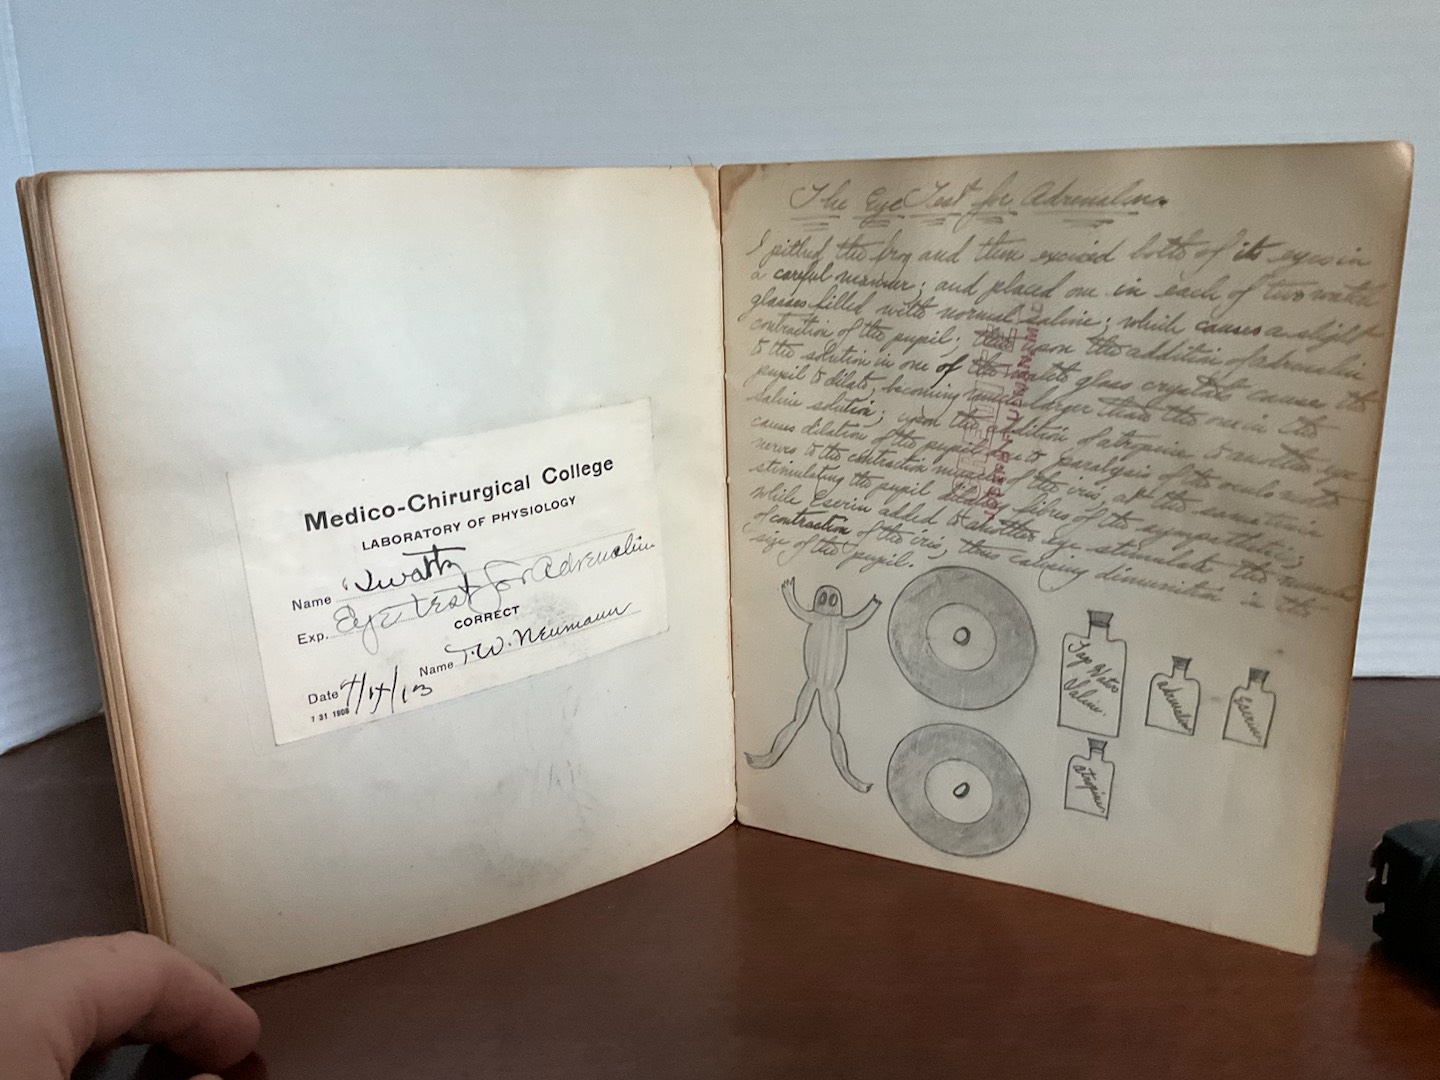 Medico-Chirurgical College
LABORATORY OF PHYSIOLOGY
Name Swartz
Exp. Eye test for Adrenalin
CORRECT
Name T.W. Neumann
Date 4/14/13
7 31 1908
The Eye Test for Adrenalin.
I pithed the frog and then excised both of its eyes in
a careful manner; and placed one in each of two watch
glasses filled with normal saline; which causes a slight
contraction of the pupil; then upon the addition of adrenalin
to the solution in one of the watch glass crystals causes the
pupil to dilate, becoming much larger than the one in the
saline solution; upon the addition of atropine to another eye
causes dilation of the pupil due to paralysis of the oculo motor
nerves to the contraction muscles of the iris, at the same time
stimulating the pupil dilating fibres of the sympathetic;
while Eserin added to another eye stimulate the muscles
of contraction of the iris, thus causing diminution in the
size of the pupil.
Tap Water
Saline.
Adrenalin
Eserin
Atropine